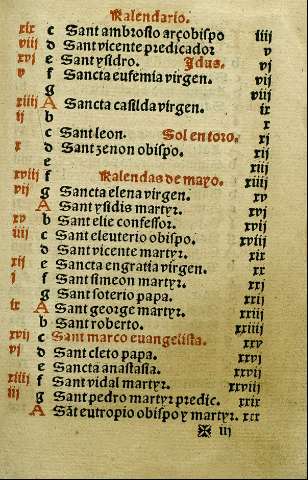 Kalendario.
xix c Sant ambrosio arçobispo iiij
viij d Sant vicente predicador v
xvj e Sant ysidro. Idus. vj
v f Sancta eufemia virgen. vij
g viij
xiiij A Sancta casilda virgen. ix
ij b x
c Sant leon. Sol en toro. xj
x d Sant zenon obispo. xij
e xiij
xviij f Kalendas de mayo. xiiij
vij g Sancta elena virgen. xv
A Sant ysidis martyr. xvj
xv b Sant elie confessor. xvij
iiij c Sant eleuterio obispo. xviij
d Sant vicente martyr. xix
xij e Sancta engratia virgen. xx
j f Sant simeon martyr. xxi
g Sant soterio papa. xxij
ix A Sant george martyr. xxiij
b Sant roberto. xxiiij
xvij c Sant marco euangelista. xxv
vj d Sant cleto papa. xxvj
e Sancta anastasia. xxvij
xiiij f Sant vidal martyr. xxviij
iij g Sant pedro martyr predic. xxix
A Sāt eutropio obispo y martyr. xxx
✠ iij